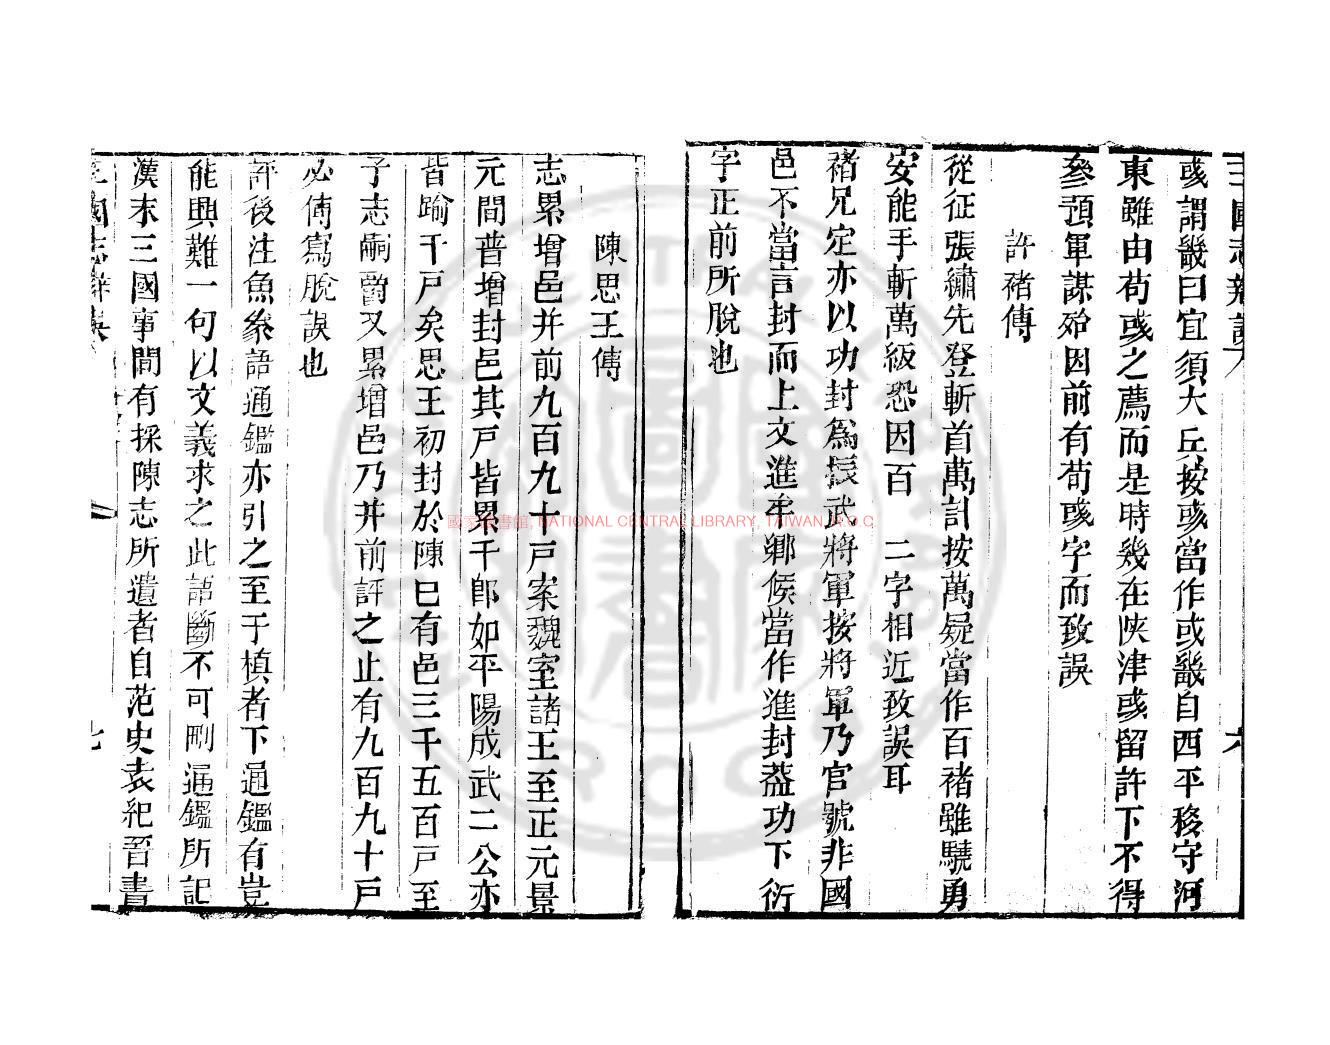 三國志辨誤
六
彧謂畿曰宜須大丘按彧當作或畿自西平移守河
東雖由荀彧之薦而是時幾在陜津彧留許下不得
參預軍謀殆因前有荀彧字而致誤
許褚傳
從征張繡先登斬首萬計按萬疑當作百褚雖驍勇
安能手斬萬級恐因百 二字相近致誤耳
褚兄定亦以功封爲振武將軍按將軍乃官號非國
邑不當言封而上文進牟鄉侯當作進封葢功下衍
字正前所脫也
陳思王傳
志累增邑并前九百九十戸案魏室諸王至正元景
元間普增封邑其戸皆累千郎如平陽成武二公亦
皆踰千戸矣思王初封於陳巳有邑三千五百戸至
子志嗣爵又累增邑乃并前評之止有九百九十戸
必傳寫脫誤也
評後注魚豢語通鑑亦引之至于植者下通鑑有豈
能興難一句以文義求之此語斷不可刪通鑑所記
漢末三國事間有採陳志所遺者自范史袁紀晉書
三國志辨誤
七
國家圖書館, NATIONAL CENTRAL LIBRARY, TAIWAN, R.O.C